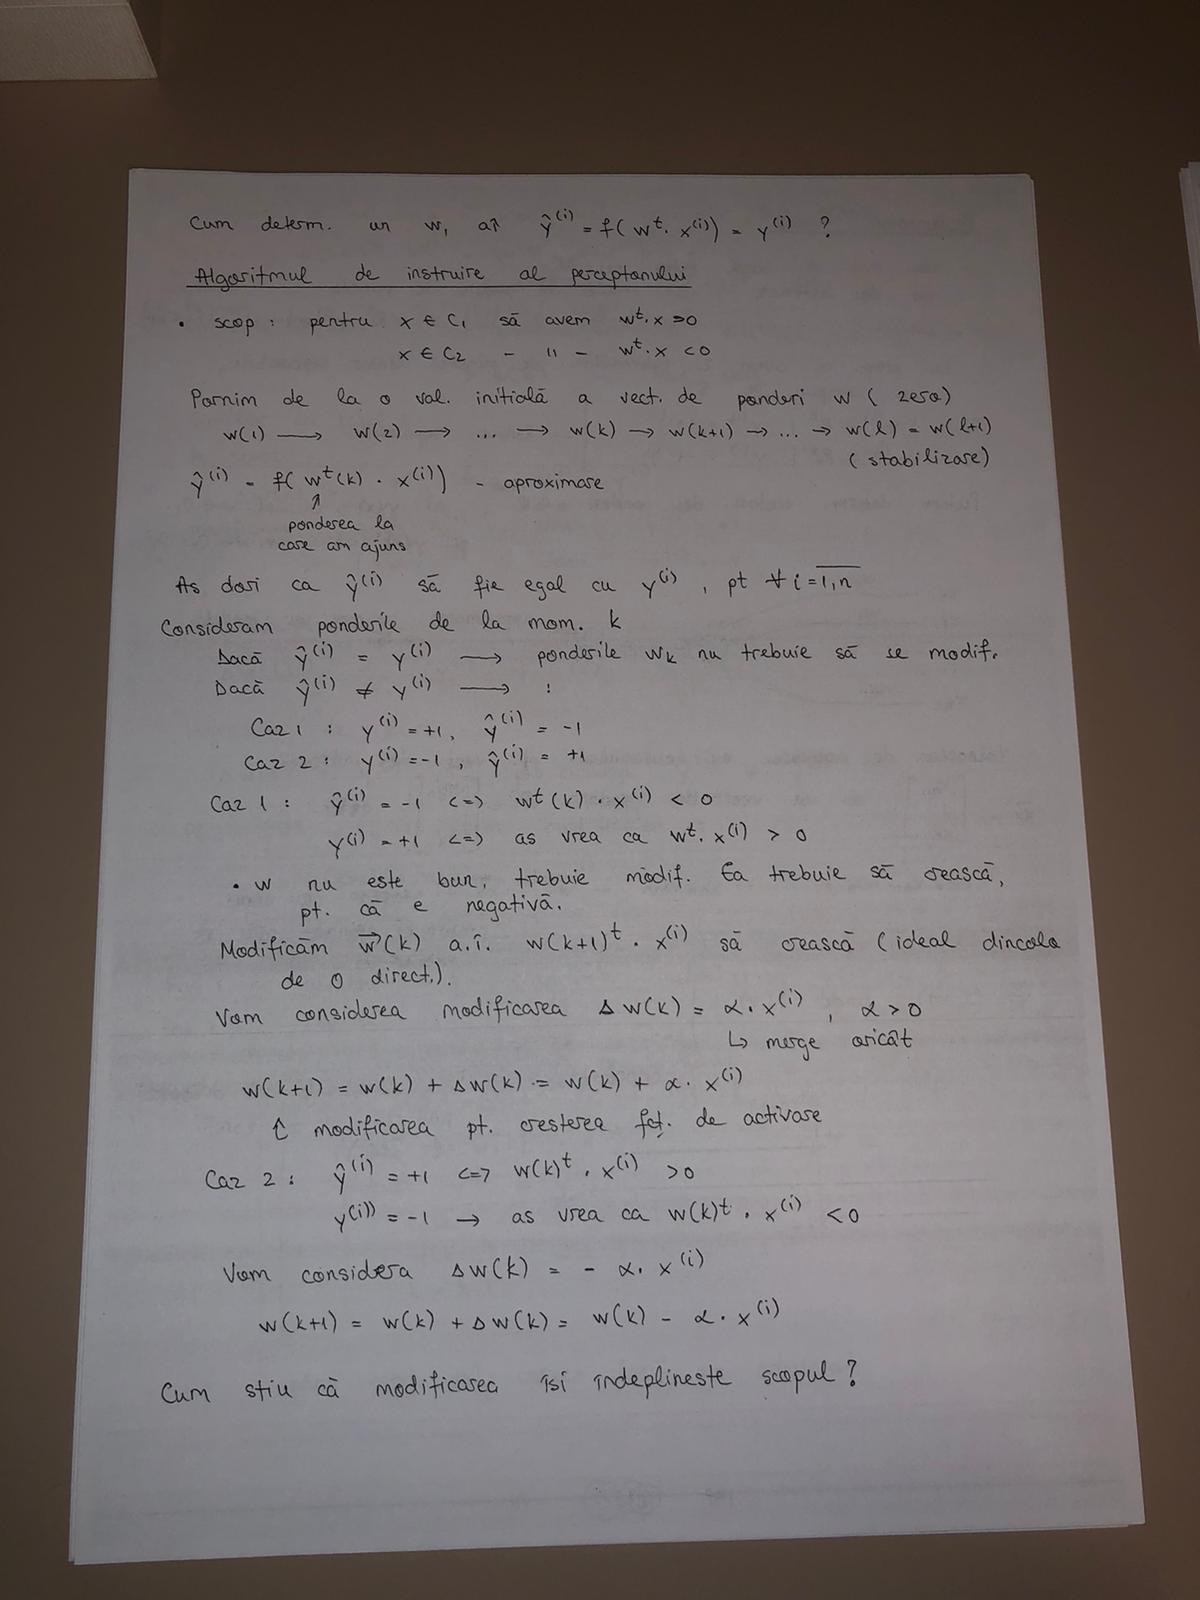 Cum determ. un w, aî ŷ⁽ⁱ⁾ = f( wᵗ · x⁽ⁱ⁾) = y⁽ⁱ⁾ ?
Algoritmul de instruire al perceptonului
• scop : pentru x ∈ C₁ să avem wᵗ·x >0
x ∈ C₂ - " - wᵗ·x <0
Pornim de la o val. initială a vect. de ponderi w ( zero)
w(1) → w(2) → ... → w(k) → w(k+1) → ... → w(l) = w(l+1)
( stabilizare)
ŷ⁽ⁱ⁾ = f( wᵗ(k) · x⁽ⁱ⁾) - aproximare
↑
ponderea la
care am ajuns
As dori ca ŷ⁽ⁱ⁾ să fie egal cu y⁽ⁱ⁾ , pt ∀ i = 1,n
Consideram ponderile de la mom. k
Dacă ŷ⁽ⁱ⁾ = y⁽ⁱ⁾ → ponderile wₖ nu trebuie să se modif.
Dacă ŷ⁽ⁱ⁾ ≠ y⁽ⁱ⁾ → :
Caz 1 : y⁽ⁱ⁾ = +1, ŷ⁽ⁱ⁾ = -1
Caz 2 : y⁽ⁱ⁾ = -1 , ŷ⁽ⁱ⁾ = +1
Caz 1 : ŷ⁽ⁱ⁾ = -1 <=> wᵗ(k) · x⁽ⁱ⁾ < 0
y⁽ⁱ⁾ = +1 <=> as vrea ca wᵗ· x⁽ⁱ⁾ > 0
• w nu este bun, trebuie modif. Ea trebuie să crească,
pt. că e negativă.
Modificăm w⃗(k) a.î. w(k+1)ᵗ · x⁽ⁱ⁾ să crească ( ideal dincolo
de 0 direct.).
Vom considerea modificarea Δ w(k) = α · x⁽ⁱ⁾ , α > 0
↳ merge oricât
w(k+1) = w(k) + Δw(k) = w(k) + α · x⁽ⁱ⁾
↑ modificarea pt. cresterea fcț. de activare
Caz 2 : ŷ⁽ⁱ⁾ = +1 <=> w(k)ᵗ · x⁽ⁱ⁾ >0
y⁽ⁱ⁾⁾ = -1 → as vrea ca w(k)ᵗ · x⁽ⁱ⁾ <0
Vom considera Δw(k) = - α · x⁽ⁱ⁾
w(k+1) = w(k) + Δ w(k) = w(k) - α · x⁽ⁱ⁾
Cum stiu că modificarea îsi îndeplineste scopul ?